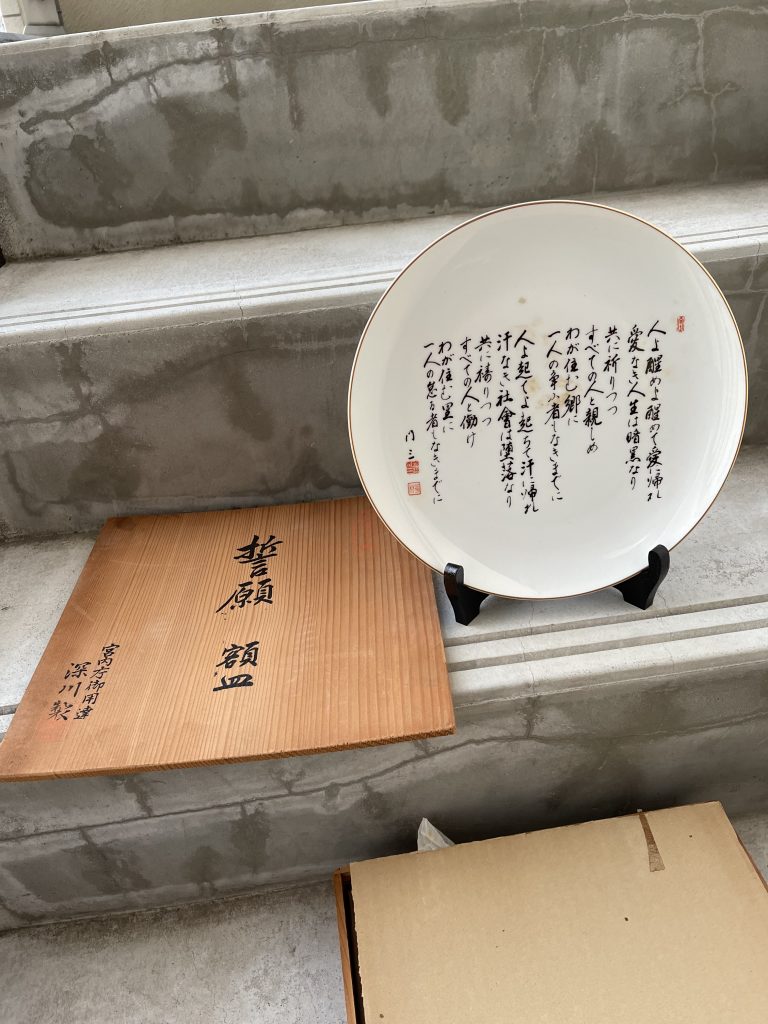 人よ醒めよ醒めて愛に帰れ
愛なき人生は暗黒なり
共に祈りつつ
すべての人と親しめ
わが住む郷に
一人の争ふ者もなきまでに
人よ起てよ起ちて汗に帰れ
汗なき社會は堕落なり
共に祷りつつ
すべての人と働け
わが住む里に
一人の怠る者もなきまでに
門三
誓願 額皿
宮内庁御用達
深川製